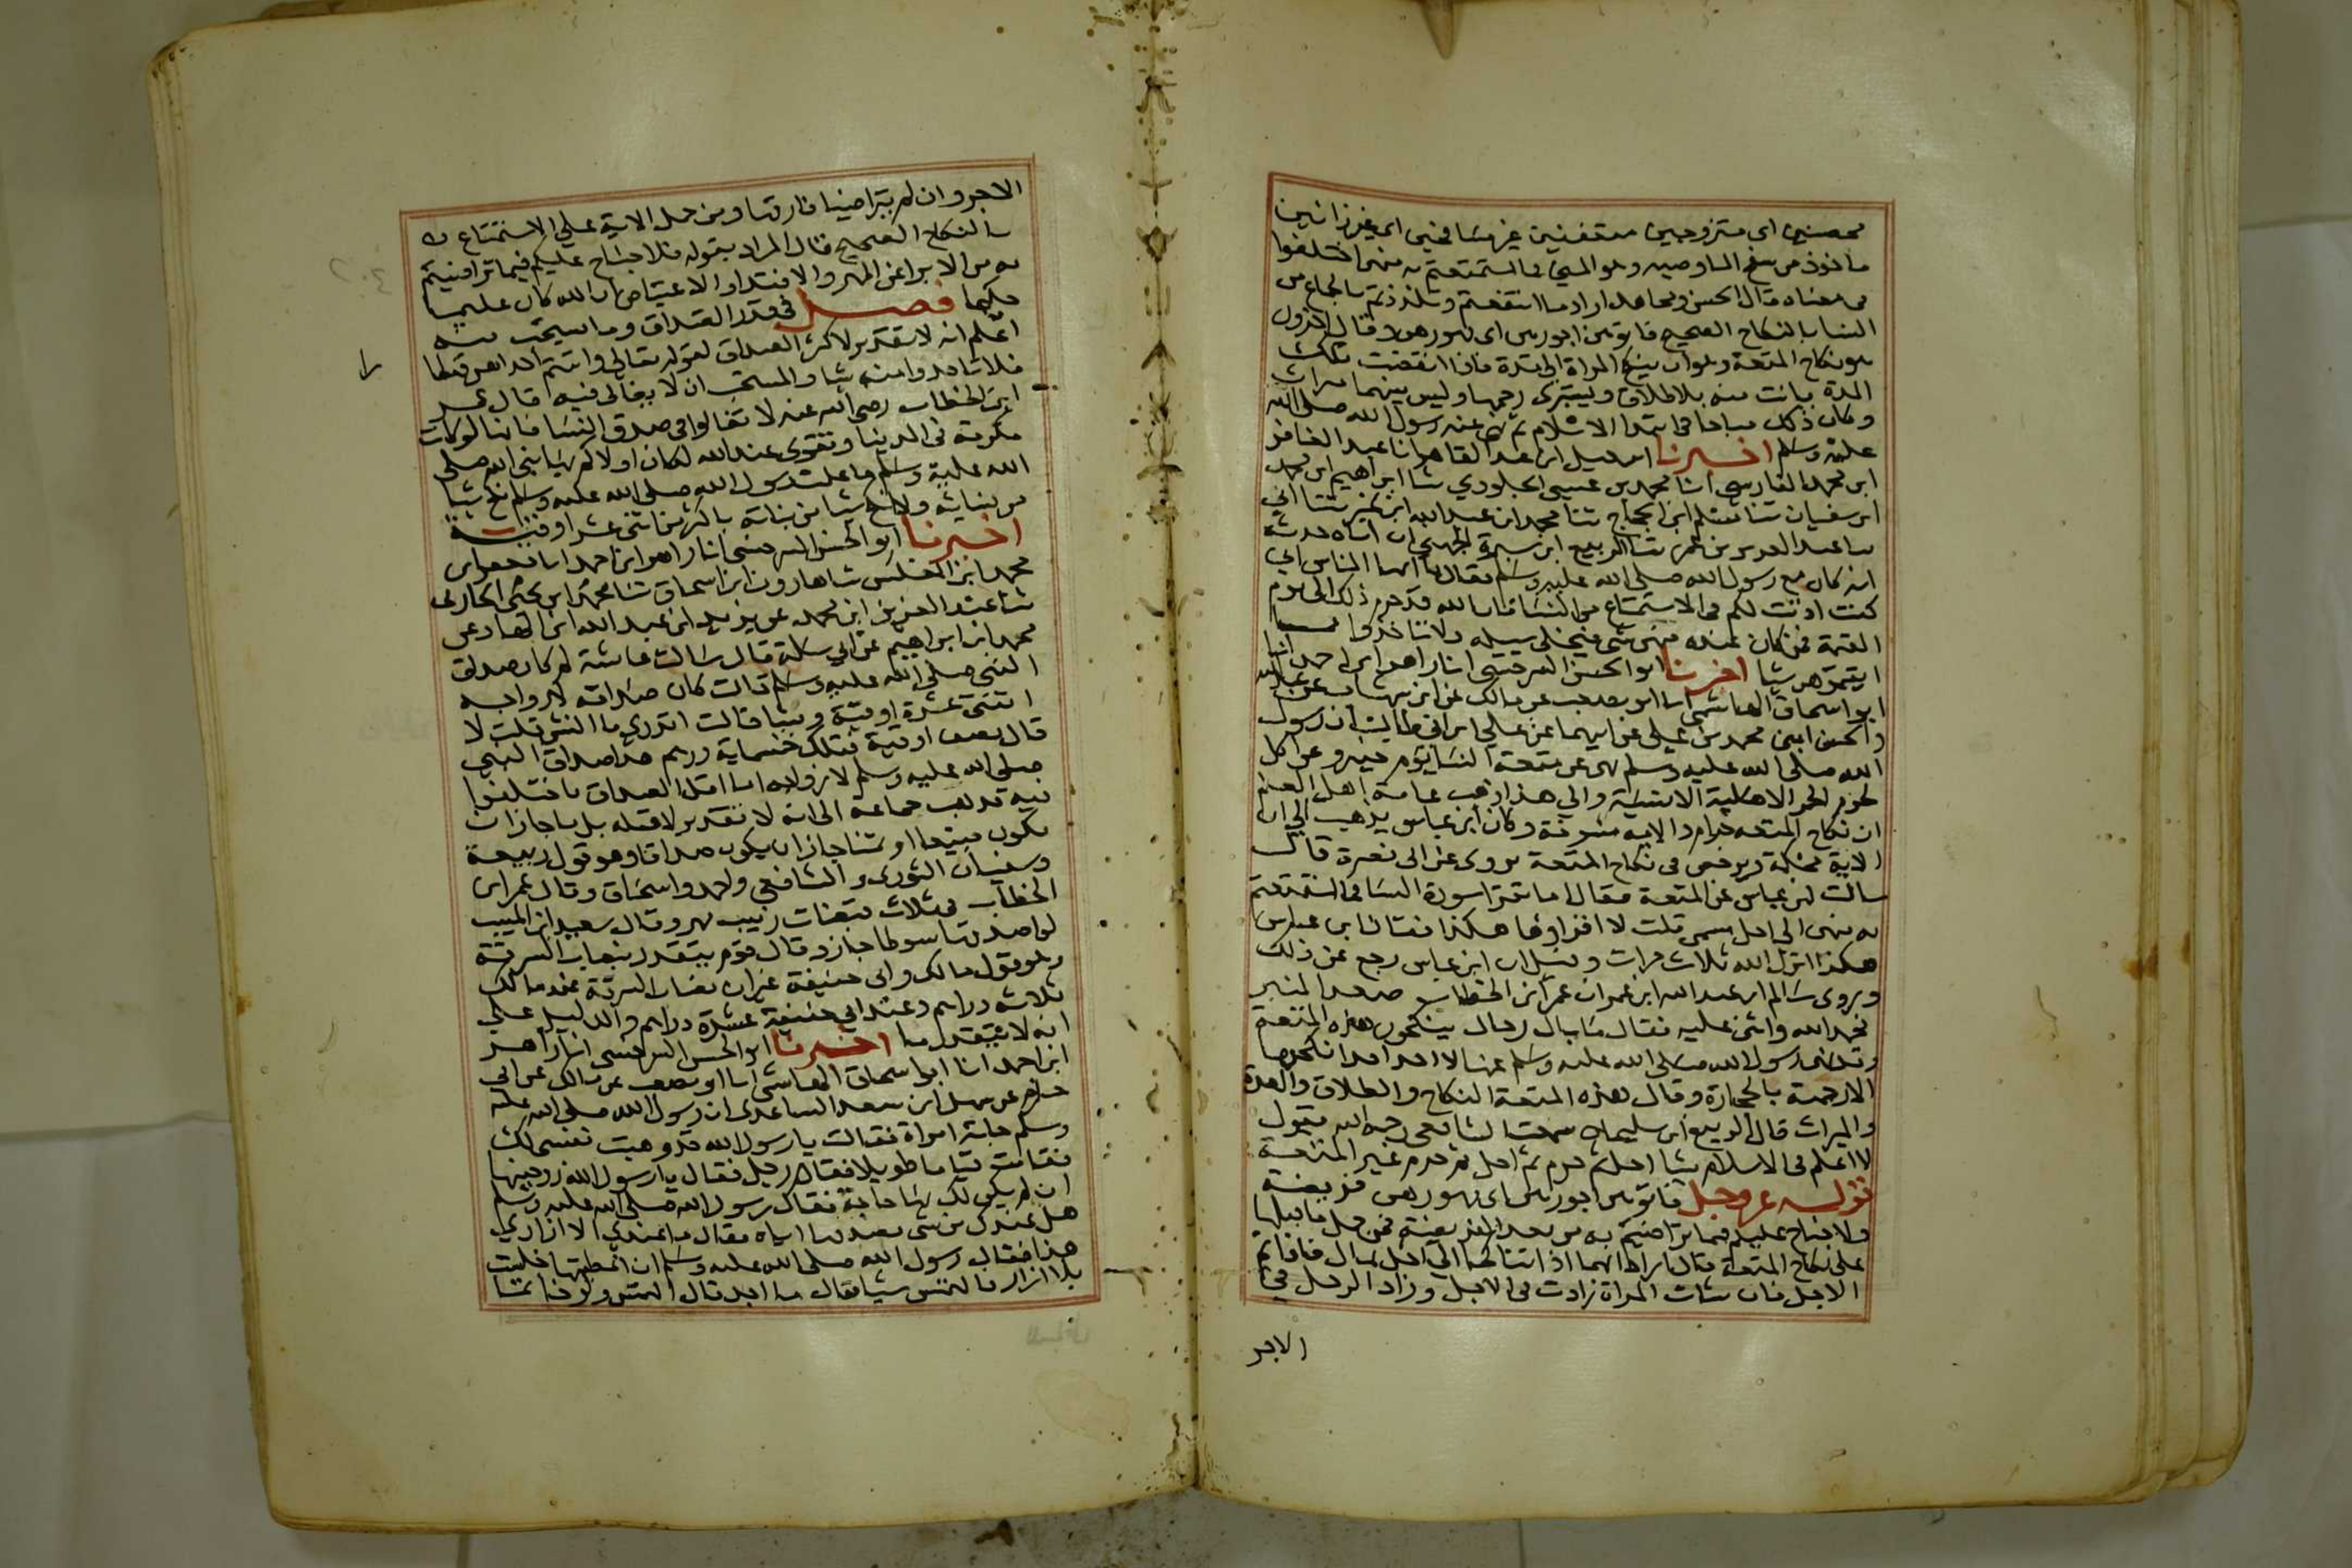 محصنين اى متزوجين متعففين غير مسافحين اى غير زانين
ماخوذ من سفح الما وصبه وهو المني فما استمتعتم به منهن اختلفوا
فى معناه فقال الحسن ومجاهد اراد ما انتفعتم وتلذذتم بالجماع من
النسا بالنكاح الصحيح فاتوهن اجورهن اى مهورهن وقال اخرون
هو نكاح المتعة وهو ان ينكح المراة الى مدة فاذا انقضت تلك
المدة بانت منه بلا طلاق ويستبرى رحمها وليس بينهما ميراث
وكان ذلك مباحا فى ابتدا الاسلام ثم نهى عنه رسول الله صلى الله
عليه وسلم اخبرنا اسمعيل ابن عبد القاهر انا عبد الغافر
ابن محمد الفارسى انا محمد بن عيسى الجلودي ثنا ابراهيم ابن محمد
ابن سفيان ثنا مسلم ابن الحجاج ثنا محمد ابن عبد الله ابن نمير ثنا ابى
ثنا عبد العزيز بن عمر ثنا الربيع ابن سبرة الجهنى ان اباه حدثه
انه كان مع رسول الله صلى الله عليه وسلم فقال يا ايها الناس اني
كنت اذنت لكم فى الاستمتاع من النسا فان الله قد حرم ذلك الى يوم
القيمة فمن كان عنده منهن شى فيخلى سبيله ولا تاخذوا مما
اتيتموهن شيا اخبرنا ابو الحسن السرخسى انا زاهر ابن احمد انا
ابو اسحاق الهاشمى انا ابو مصعب عن مالك عن ابن شهاب عن عبد الله
والحسن ابنى محمد بن على عن ابيهما عن على ابن ابى طالب ان رسول
الله صلى الله عليه وسلم نهى عن متعة النسا يوم خيبر وعن اكل
لحوم الحمر الاهلية الانسية والي هذا ذهب عامة اهل العلم
ان نكاح المتعه حرام والاية منسوخة وكان ابن عباس يذهب الى ان
الاية محكمة ويرخص فى نكاح المتعة وروى عن ابى نضرة قال
سالت ابن عباس عن المتعة فقال اما تقرا سورة النسا فما استمتعتم
به منهن الى اجل مسمى قلت لا اقراوها هكذا فقال ابن عباس
هكذا انزل الله ثلاث مرات وقيل ان ابن عباس رجع عن ذلك
وروى سالم ابن عبد الله ابن عمر ان عمر ابن الخطاب صعد المنبر
فحمد الله واثنى عليه فقال ما بال رجال ينكحون هذه المتعة
وقد نهى رسول الله صلى الله عليه وسلم عنها لا اجد احدا نكحها
الا رجمته بالحجارة وقال هذه المتعة النكاح والطلاق والعدة
والميراث قال الربيع ابن سليمان سمعت الشافعى رحمه الله يقول
لا اعلم فى الاسلام شيا احل ثم حرم ثم احل ثم حرم غير المتعة
قوله عز وجل فاتوهن اجورهن اى مهورهن فريضة
ولا جناح عليكم فيما تراضيتم به من بعد الفريضة فمن حمل ما قبلها
على نكاح المتعة قال اراد انهما اذا تناكحا الي اجل بمال فاذا تم
الاجل فان شات المراة زادت فى الاجل وزاد الرجل فى
الاجر
الاجر وان لم يتراضيا فارقها ومن حمل الاية على الاستمتاع
بالنكاح الصحيح قال المراد بقوله فلا جناح عليكم فيما تراضيتم
به من الابرا عن المهر والافتدا والاعتياض ان الله كان عليما
حكيما فصل فى قدر الصداق وما يستحب منه
اعلم انه لا تقدير لاكثر الصداق لقوله تعالى واتيتم احداهن قنطارا
فلا تاخذوا منه شيا والمستحب ان لا يغالى فيه قال عمر
ابن الخطاب رضى الله عنه لا تغالوا فى صدق النسا فانها لو كانت
مكرمة فى الدنيا وتقوى عند الله لكان اولاكم بها نبى الله صلى
الله عليه وسلم ما علمت رسول الله صلى الله عليه وسلم نكح شيا
من نسائه ولا انكح شيا من بناته باكثر من اثنى عشر اوقية
اخبرنا ابو الحسن السرخسى انا زاهر ابن احمد انا جعفر ابن
محمد ابن المغلس ثنا هارون ابن اسحاق ثنا محمد ابن يحيى الحارثى
ثنا عبد العزيز ابن محمد عن يزيد ابن عبد الله ابن الهاد عن
محمد ابن ابراهيم عن ابي سلمة قال سالت عائشة كم كان صداق
النبى صلى الله عليه وسلم قالت كان صداقه لازواجه
اثنتى عشرة اوقية ونشا قالت اتدري ما النش قلت لا
قال نصف اوقية فتلك خمسماية درهم هذا صداق النبي
صلى الله عليه وسلم لازواجه اما اقل الصداق فاختلفوا
فيه فذهب جماعة الى انه لا تقدير لاقله بل ما جاز ان
يكون مبيعا او ثمنا جاز ان يكون صداقا وهو قول ربيعة
وسفيان الثورى والشافعي واحمد واسحاق وقال عمر ابن
الخطاب فى ثلاث قبضات زبيب مهر وقال سعيد ابن المسيب
لو اصدقها سوطا جاز وقال قوم يتقدر بنصاب السرقة
وهو قول مالك وابى حنيفة غير ان نصاب السرقة عند مالك
ثلاثه دراهم وعند ابي حنيفة عشرة دراهم والدليل على
انه لا يتقدر ما اخبرنا ابو الحسن السرخسى انا زاهر
ابن احمد انا ابو اسحاق الهاشمى انا ابو مصعب عن مالك عن ابى
حازم عن سهل ابن سعد الساعدى ان رسول الله صلى الله عليه
وسلم جاته امراة فقالت يا رسول الله قد وهبت نفسى لك
فقامت قياما طويلا فقام رجل فقال يا رسول الله زوجنيها
ان لم يكن لك بها حاجة فقال رسول الله صلى الله عليه وسلم
هل عندك من شى تصدقها اياه فقال ما عندي الا ازاري
هذا فقال رسول الله صلى الله عليه وسلم ان اعطيتها جلست
بلا ازار فالتمس شيا فقال ما اجد قال التمس ولو خاتما